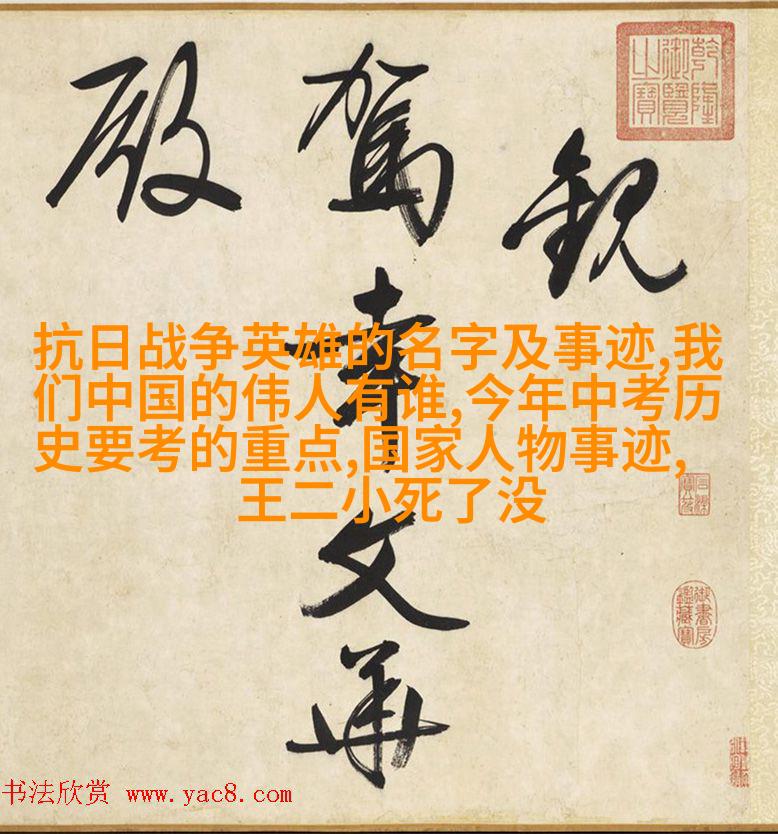 乾隆
御覽
之寶
觀
駕幸文華
殿
抗日战争英雄的名字及事迹,我
们中国的伟人有谁,今年中考历
史要考的重点,国家人物事迹,
王二小死了没
石渠
寶笈
御書房
鑑藏寶
书法欣赏 www.yac8.com